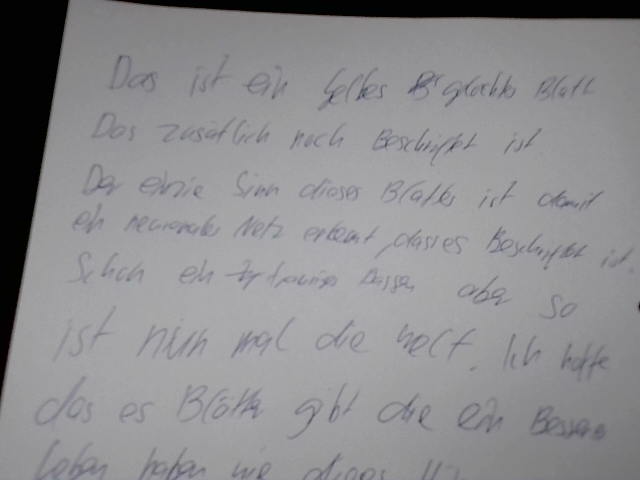 Das ist ein gelbes gelochtes Blatt
Das zusätlich noch Beschriftet ist
Der einzie Sinn dieses Blattes ist damit
ein neuronales Netz erkennt, dass es Beschriftet ist.
Schon ein trauriges aber so
ist nun mal die welt. Ich hoffe
das es Blätter gibt die ein Besseres
leben haben wie dieses